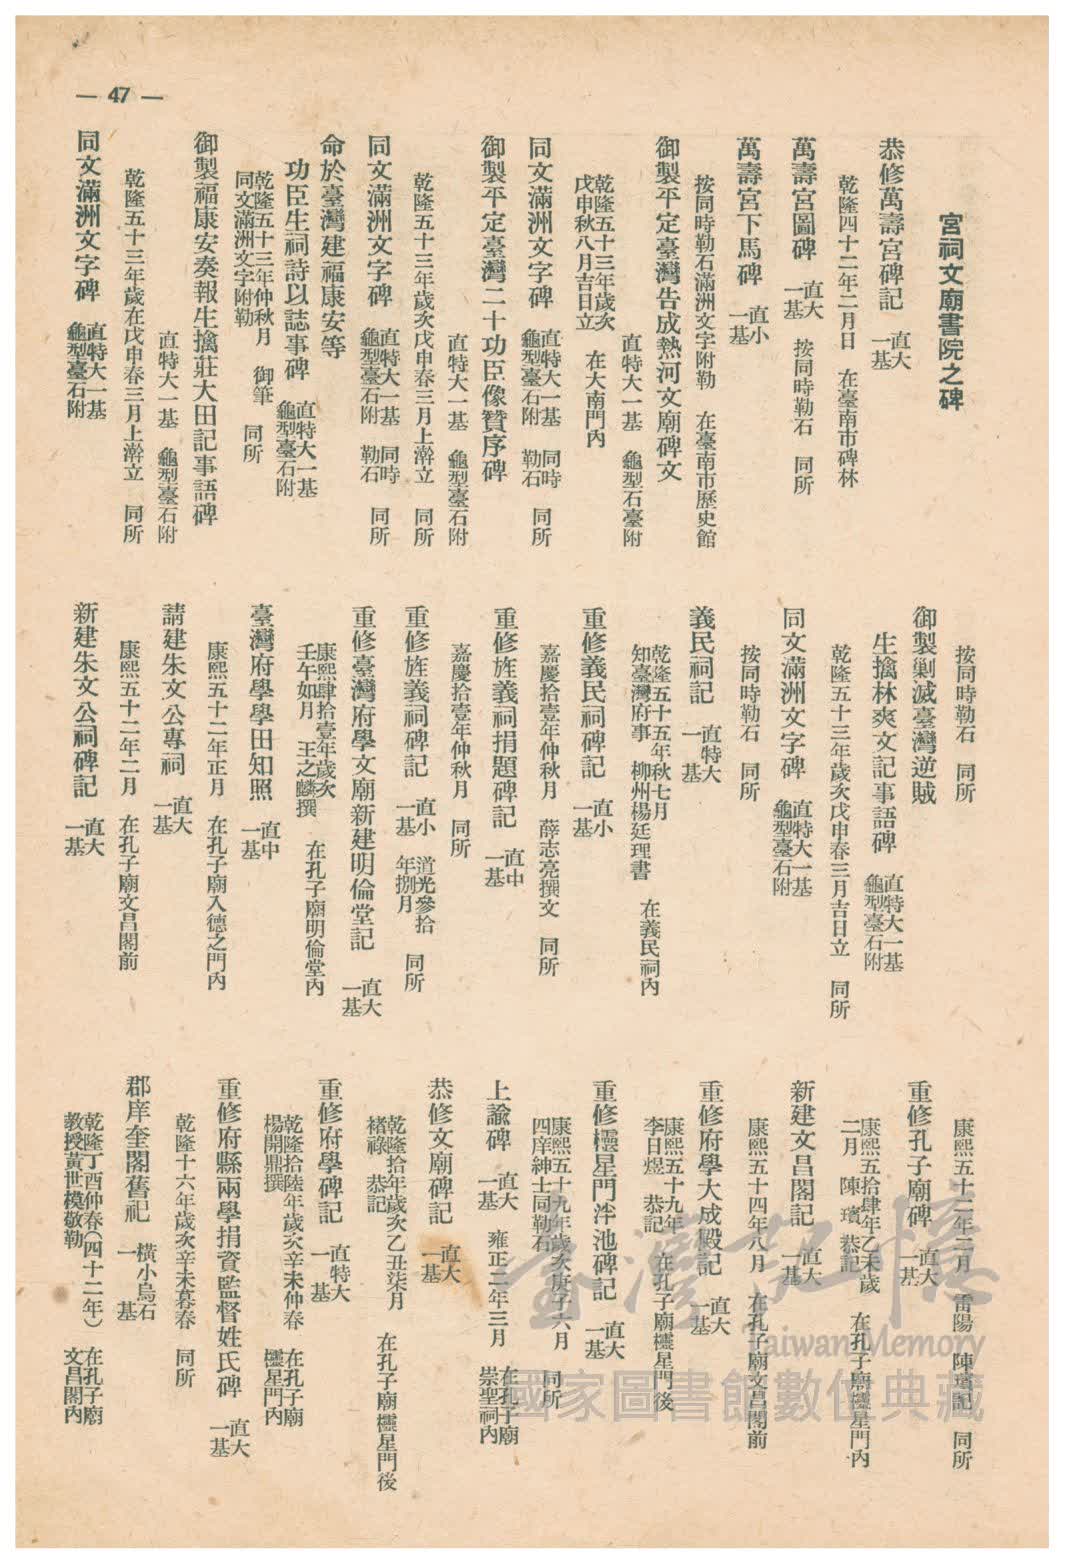 — 47 —
宮祠文廟書院之碑
恭修萬壽宮碑記　直大一基
乾隆四十二年二月日　在臺南市碑林
萬壽宮圖碑　直大一基　按同時勒石　同所
萬壽宮下馬碑　直小一基
按同時勒石滿洲文字附勒　在臺南市歷史館
御製平定臺灣告成熱河文廟碑文
直特大一基　龜型石臺附
乾隆五十三年歲次戊申秋八月吉日立　在大南門內
同文滿洲文字碑　直特大一基　龜型臺石附　同時勒石　同所
御製平定臺灣二十功臣像贊序碑
直特大一基　龜型臺石附
乾隆五十三年歲次戊申春三月上澣立　同所
同文滿洲文字碑　直特大一基　龜型臺石附　同時勒石　同所
命於臺灣建福康安等
功臣生祠詩以誌事碑　直特大一基　龜型臺石附
乾隆五十三年仲秋月　御筆　同文滿洲文字附勒　同所
御製福康安奏報生擒莊大田記事語碑
直特大一基　龜型臺石附
乾隆五十三年歲在戊申春三月上澣立　同所
同文滿洲文字碑　直特大一基　龜型臺石附
按同時勒石　同所
御製剿滅臺灣逆賊
生擒林爽文記事語碑　直特大一基　龜型臺石附
乾隆五十三年歲次戊申春三月吉日立　同所
同文滿洲文字碑　直特大一基　龜型臺石附
按同時勒石　同所
義民祠記　直特大一基
乾隆五十五年秋七月　知臺灣府事　柳州楊廷理書　在義民祠內
重修義民祠碑記　直小一基
嘉慶拾壹年仲秋月　薛志亮撰文　同所
重修旌義祠捐題碑記　直中一基
嘉慶拾壹年仲秋月　同所
重修旌義祠碑記　直小一基　道光參拾年捌月　同所
重修臺灣府學文廟新建明倫堂記　直大一基
康熙肆拾壹年歲次壬午如月　王之麟撰　在孔子廟明倫堂內
臺灣府學學田知照　直中一基
康熙五十二年正月　在孔子廟入德之門內
請建朱文公專祠　直大一基
康熙五十二年二月　在孔子廟文昌閣前
新建朱文公祠碑記　直大一基
康熙五十二年二月　雷陽　陳璸記　同所
重修孔子廟碑　直大一基
康熙五拾肆年乙未歲二月　陳璸恭記　在孔子廟欞星門內
新建文昌閣記　直大一基
康熙五十四年八月　在孔子廟文昌閣前
重修府學大成殿記　直大一基
康熙五十九年　李日煜　恭記　在孔子廟欞星門後
重修欞星門泮池碑記　直大一基
康熙五十九年歲次庚子六月　四庠紳士同勒石　同所
上諭碑　直大一基　雍正二年三月　在孔子廟崇聖祠內
恭修文廟碑記　直大一基
乾隆拾年歲次乙丑柒月　褚祿　恭記　在孔子廟欞星門後
重修府學碑記　直特大一基
乾隆拾陸年歲次辛未仲春　楊開鼎撰　在孔子廟欞星門內
重修府縣兩學捐資監督姓氏碑　直大一基
乾隆十六年歲次辛未暮春　同所
郡庠奎閣舊祀　橫小烏石一基
乾隆丁酉仲春（四十二年）　教授黃世模敬勒　在孔子廟文昌閣內
臺灣記憶
Taiwan Memory
國家圖書館數位典藏